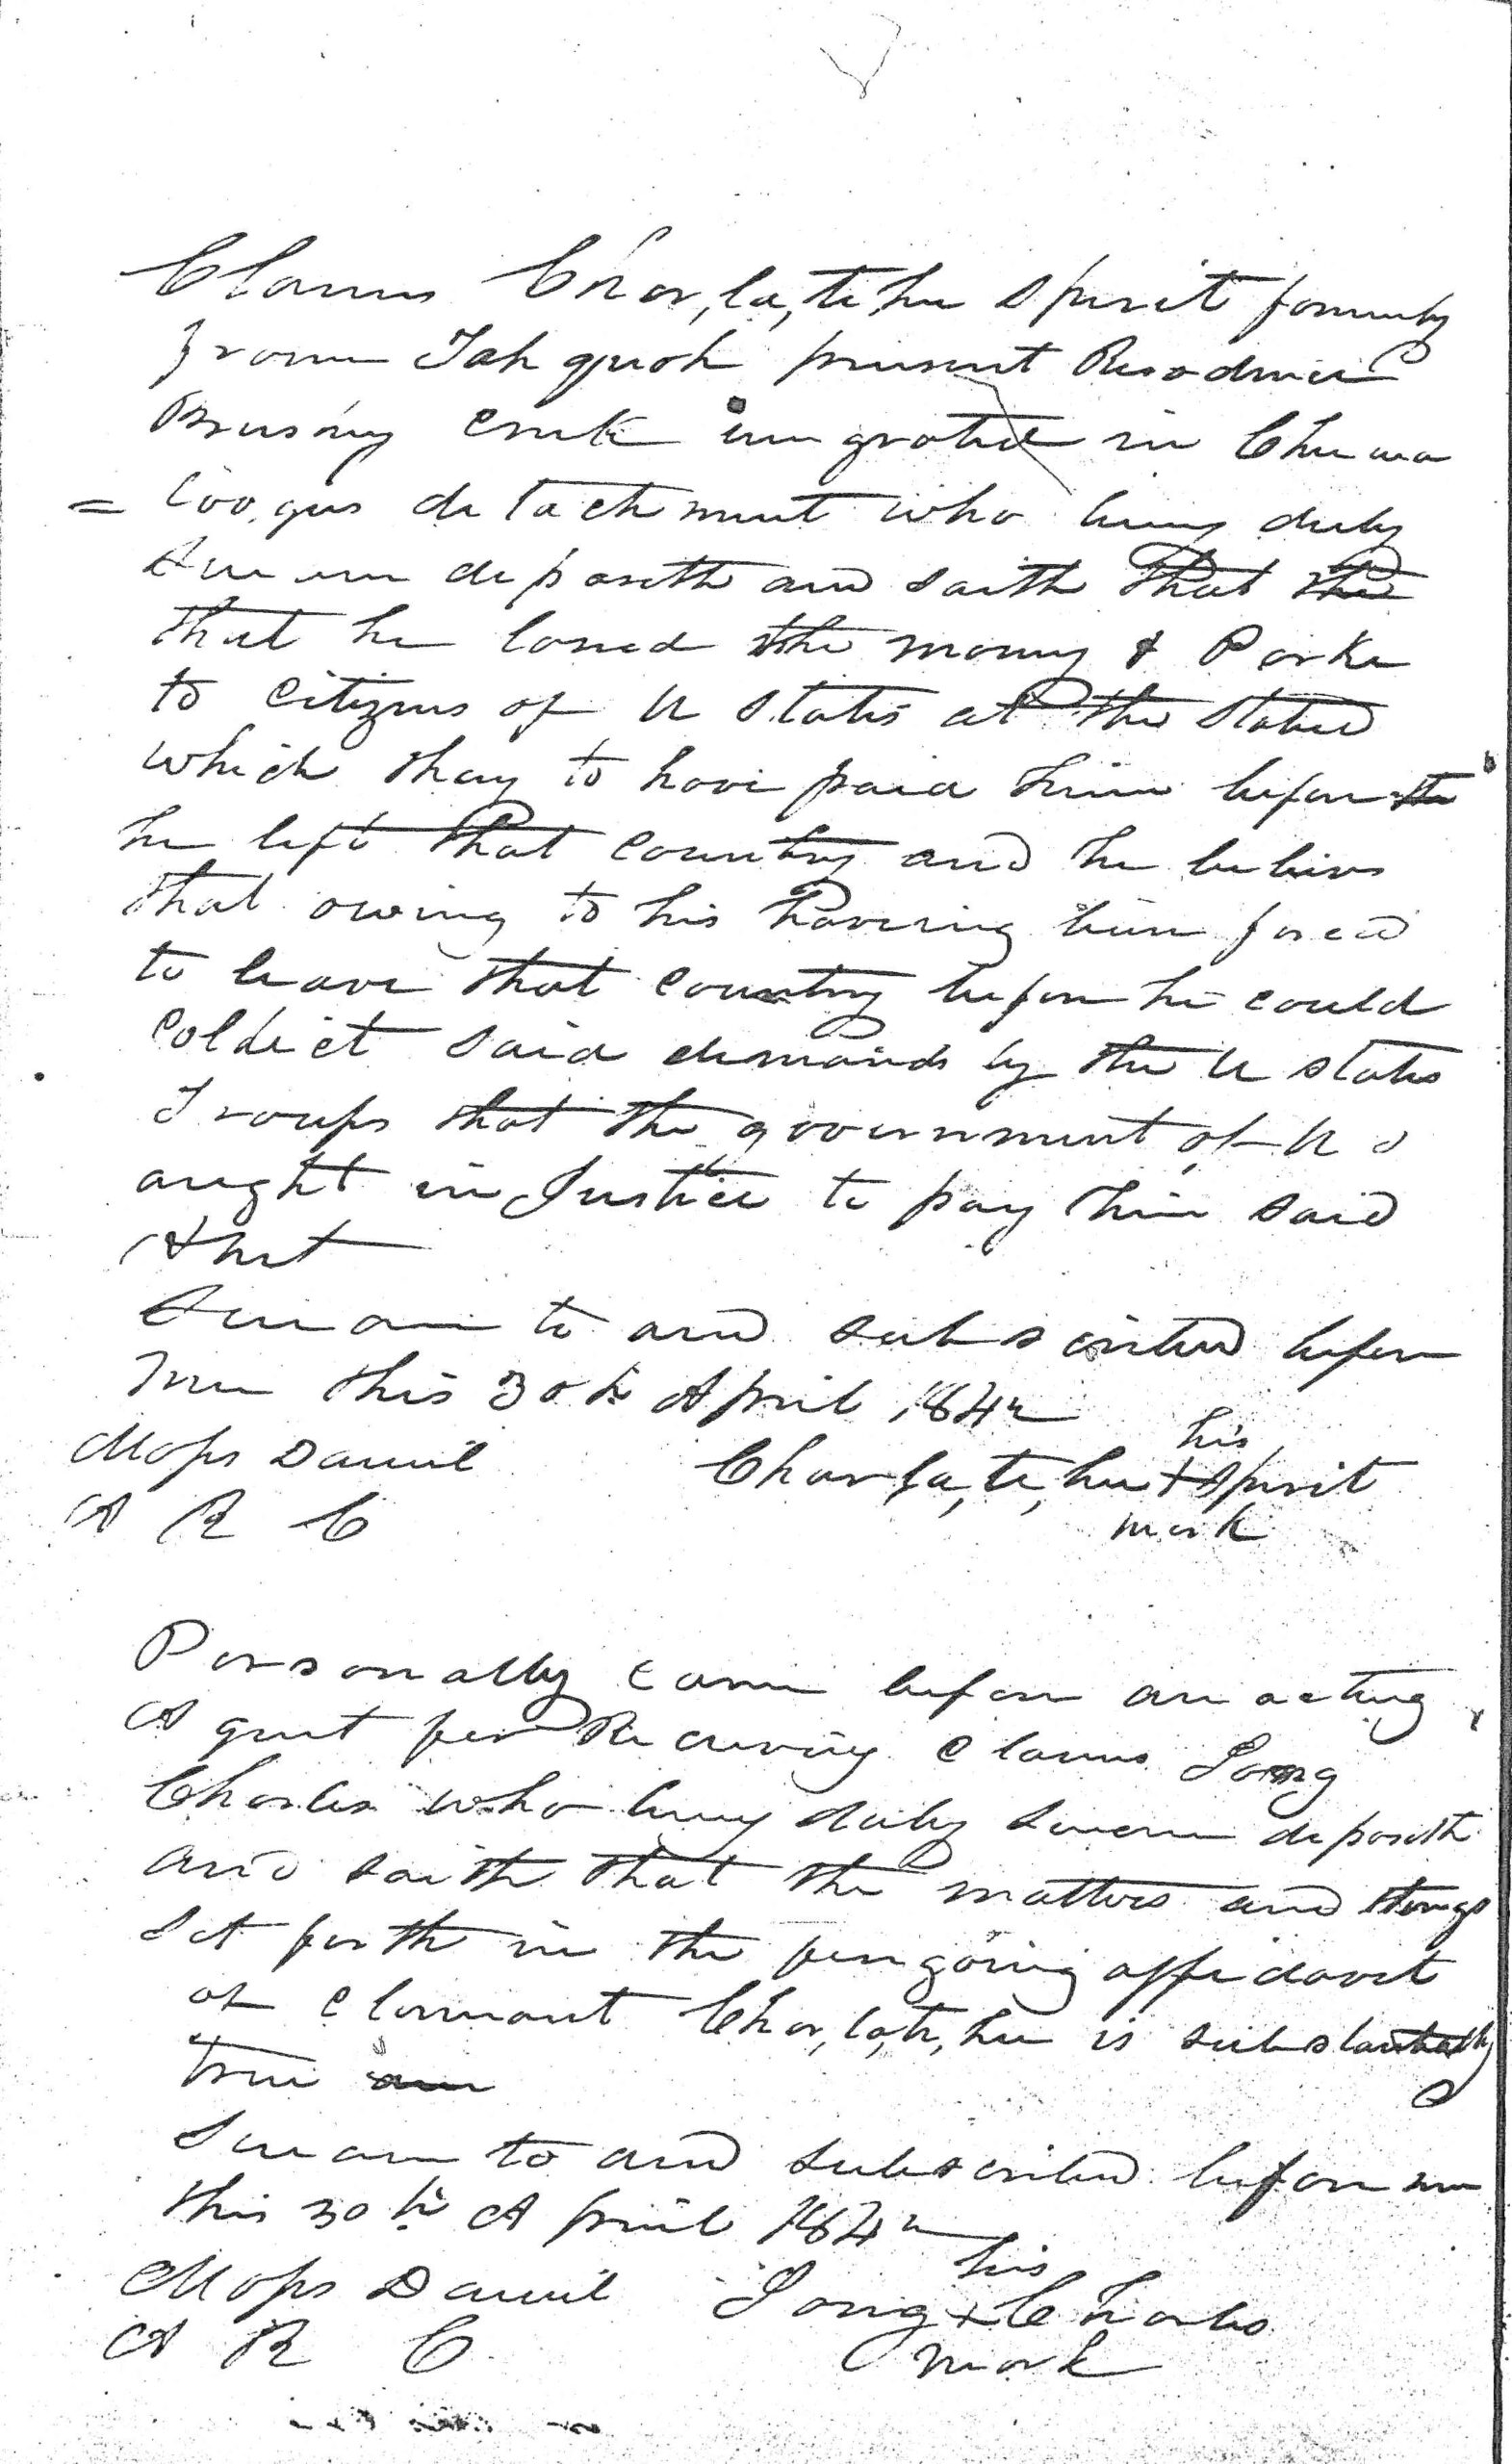 Claims Char,la,te,hee Spirit formerly
from Tahquoh present Residence
Brushy Creek imigrated in Chuwa
= loogus detachment who being duly
Sworn deposeth and saith that the
that he loned the money & Porke
to Citizens of U States at the stated
which thay to have paid him before the
he left that country and he belives
that owing to his having been forced
to leave that country before he could
Coldict said demands by the U States
Troops that the government of U S
aught in Justice to pay him said
debt
Sworn to and subscribed before
me this 30th April 1842
Moses Daniel Char,la,te,hee his + Spirit
A R C mark
Personally came before an acting
Agent for Receiving Claims Long
Charles who being duly sworn deposeth
and saith that the matters and things
Set forth in the foregoing affidavit
of Claimant Char,la,te,hee is substantially
true am
Sworn to and subscribed before me
this 30th April 1842
Moses Daniel Long his + Charles
A R C mark